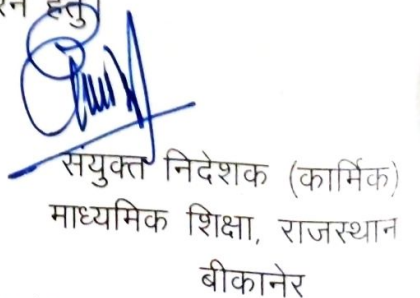 हेतु
संयुक्त निदेशक (कार्मिक)
माध्यमिक शिक्षा, राजस्थान
बीकानेर